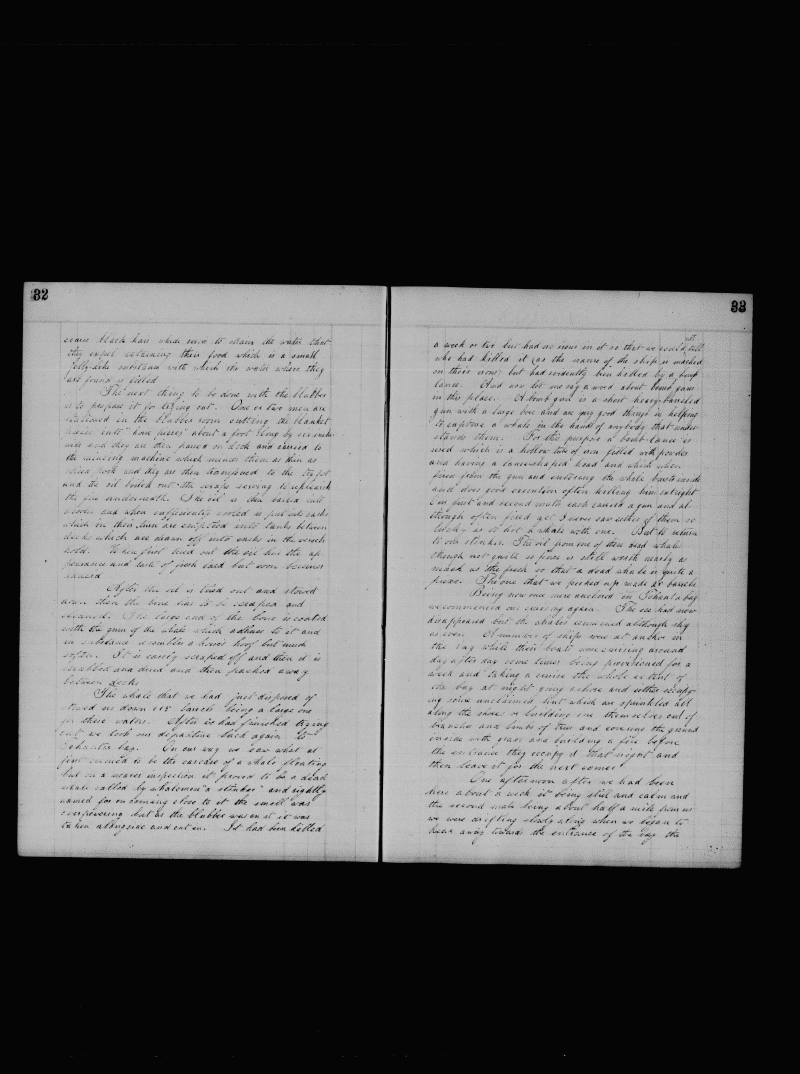 32
coarse black hair which serve to strain the water that
they expel retaining their food which is a small
jelly-like substance with which the water where they
are found is filled
The next thing to be done with the blubber
is to prepare it for trying out. One or two men are
stationed in the blubber room cutting the blanket
pieces into "horse pieces" about a foot long by six inches
wide and they are then passed on deck and carried to
the mincing machine which minces them as thin as
sliced pork and they are then transferred to the try pot
and the oil boiled out the scraps serving to replenish
the fire underneath. The oil is then bailed into
coolers and when sufficiently cooled is put into casks
which in their turn are emptied into tanks between
decks which are drawn off into casks in the vessels
hold. When first tried out the oil has the ap
pearance and taste of fresh lard but soon becomes
rancid
After the oil is tried out and stowed
down then the bone has to be scraped and
cleaned. The large end of the bone is coated
with the gum of the whale which adheres to it and
in substance resembles a horse's hoof but much
softer. It is easily scraped off and then it is
scrubbed and dried and then packed away
between decks
The whale that we had just disposed of
stowed us down 115 barrels being a large one
for these waters. After we had finished trying
out we took our departure back again to
Schantar bay. On our way we saw what at
first seemed to be the carcase of a whale floating
but on a nearer inspection it proved to be a dead
whale called by whalemen "a stinker" and rightly
named for on coming close to it the smell was
overpowering but as the blubber was on it it was
taken alongside and cut in. It had been killed
33
a week or two but had no irons in it so that we could not tell
who had killed it (as the name of the ship is marked
on their irons) but had evidently been killed by a bomb
lance. And now let me say a word about bomb guns
in this place. A bomb gun is a short heavy-barreled
gun with a large bore and are very good things in helping
to capture a whale in the hands of anybody that under
stands them. For this purpose a bomb-lance is
used which is a hollow tube of iron filled with powder
and having a lance-shaped head and which when
fired from the gun and entering the whale bursts inside
and does good execution often killing him outright
Our first and second mate each carried a gun and al
though often fired yet I never saw either of them so
lucky as to hit a whale with one. But to return
to our stinker. The oil from one of these dead whales
though not quite so good is still worth nearly as
much as the fresh so that a dead whale is quite a
prize. The one that we picked up made barrels
Being now once more anchored in Schantar bay
we commenced our cruising again. The ice had now
disappeared but the whales remained although shy
as ever. A number of ships were at anchor in
the bay while their boats were cruising around
day after day some times being provisioned for a
week and taking a cruise the whole extent of
the bay at night going ashore and either occupy
ing some unclaimed hut which are sprinkled all
along the shore or building one themselves out of
branches and limbs of trees and covering the ground
inside with grass and building a fire before
the entrance they occupy it that night and
then leave it for the next comer
One afternoon after we had been
here about a week it being still and calm and
the second mate being about half a mile from us
we were drifting slowly along when we began to
hear away towards the entrance of the bay the